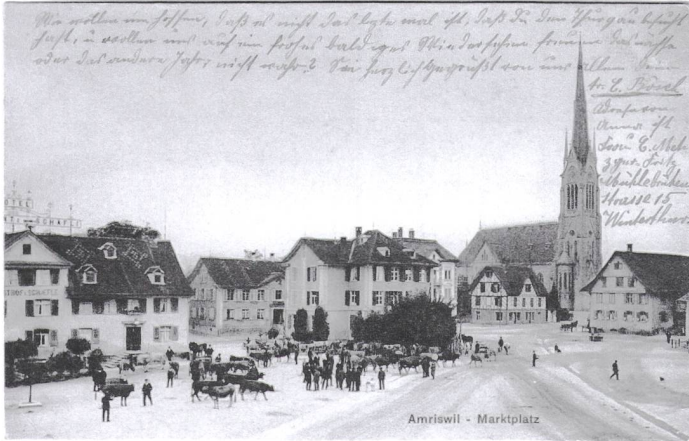 Wir wollen nun hoffen, daß es nicht das letzte mal ist, daß du den Thurgau besucht
hast, u. wollen uns auf ein frohes baldiges Wiedersehen freuen das nächste
oder das andere Jahr, nicht wahr? Sei herzlich gegrüßt von uns allen
Adresse von
Anna ist
Frau E.
Mühlebrücke
strasse 15
Winterthur
Amriswil - Marktplatz